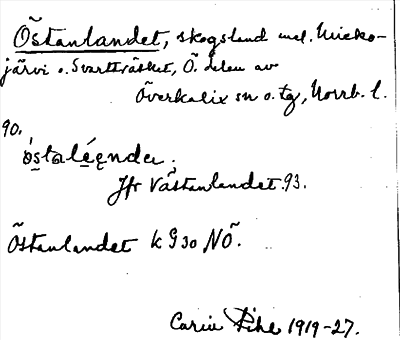 Östanlandet, skogsland mel. Miekojärvi o. Svartträsket, Ö. delen av
Överkalix sn o. tg, Norrb. l.
90.
östaléęnder.
Jfr Västanlandet 93.
Östanlandet k G 30 NÖ.
Carin Pihl 1919-27.